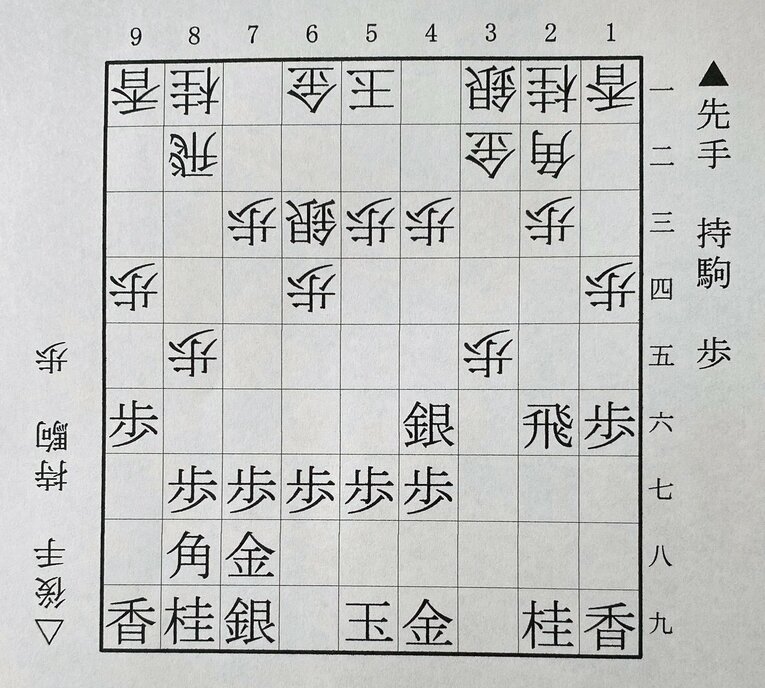 9 8 7 6 5 4 3 2 1
香 桂 金 玉 銀 桂 香 一
飛 金 角 二
歩 銀 歩 歩 歩 三
歩 歩 歩 四
歩 歩 五
歩 銀 飛 歩 六
歩 歩 歩 歩 歩 七
角 金 八
香 桂 銀 玉 金 桂 香 九
▲先手 持駒 歩
△後手 持駒 歩